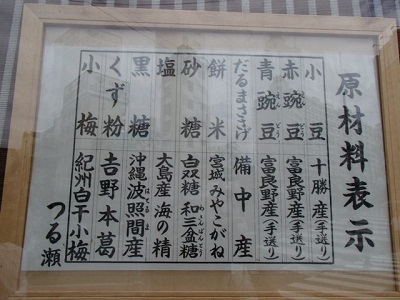 原材料表示
小豆 十勝産(手送り)
赤豌豆 富良野産(手送り)
青豌豆 富良野産(手送り)
だるまささげ 備中産
餅米 宮城みやこがね
砂糖 白双糖 和三盆糖
塩 大島産 海の精
黒糖 沖縄波照間産
くず粉 吉野本葛
小梅 紀州白干小梅
つる瀬